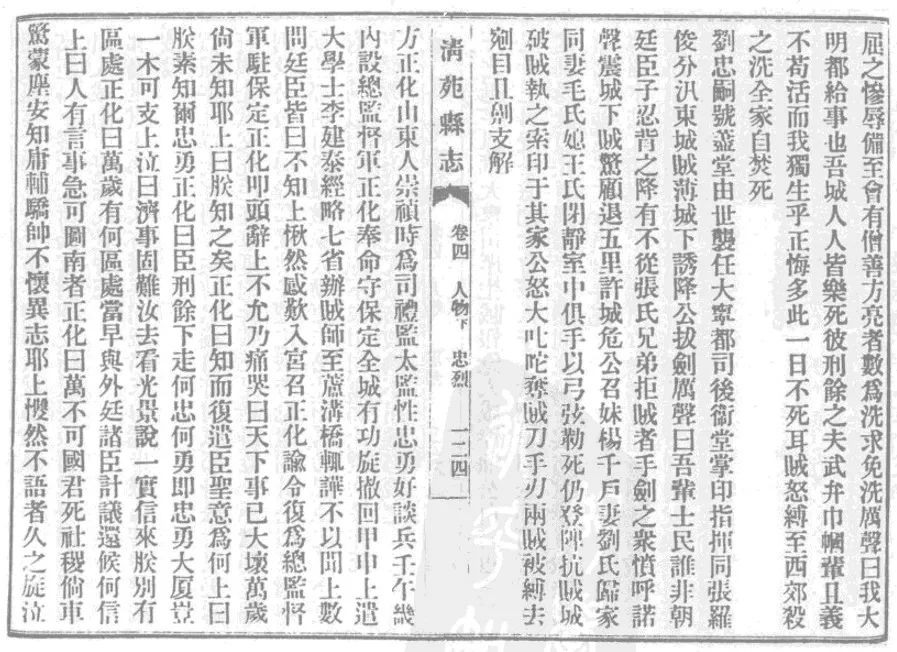 屈之慘辱備至會有僧善方亮者數爲洗求免洗厲聲曰我大
明都給事也吾城人人皆樂死彼刑餘之夫武弁巾幗輩且義
不苟活而我獨生乎正悔多此一日不死耳賊怒縛至西郊殺
之洗全家自焚死
劉忠嗣號藎堂由世襲任大寧都司後衞堂掌印指揮同張羅
俊分汛東城賊薄城下誘降公拔劍厲聲曰吾輩士民誰非朝
廷臣子忍背之降有不從張氏兄弟拒賊者手劍之衆憤呼諾
聲震城下賊驚顧退五里許城危公召妹楊千戶妻劉氏歸家
同妻毛氏媳王氏閉靜室中俱手以弓弦勒死仍登陴抗賊城
破賊執之索印于其家公怒大叱咤奪賊刀手刃兩賊被縛去
剜目且劓支解
清苑縣志
卷四 人物下 忠烈 一二四
方正化山東人崇禎時爲司禮監太監性忠勇好談兵壬午畿
內設總監督軍正化奉命守保定全城有功旋撤回甲申上遣
大學士李建泰經略七省辦賊師至蘆溝橋輒譁不以聞上數
問廷臣皆曰不知上愀然歎入宮召正化諭令復爲總監督
軍駐保定正化叩頭辭上不允乃痛哭曰天下事已大壞萬歲
尙未知耶上曰朕知之矣正化曰知而復遣臣聖意爲何上曰
朕素知爾忠勇正化曰臣刑餘下走何忠何勇即忠勇大厦豈
一木可支上泣曰濟事固難汝去看光景說一實信來朕別有
區處正化曰萬歲有何區處當早與外廷諸臣計議還候何信
上曰人有言事急可圖南者正化曰萬不可國君死社稷倘車
驚蒙塵安知庸輔驕帥不懷異志耶上戄然不語者久之旋泣